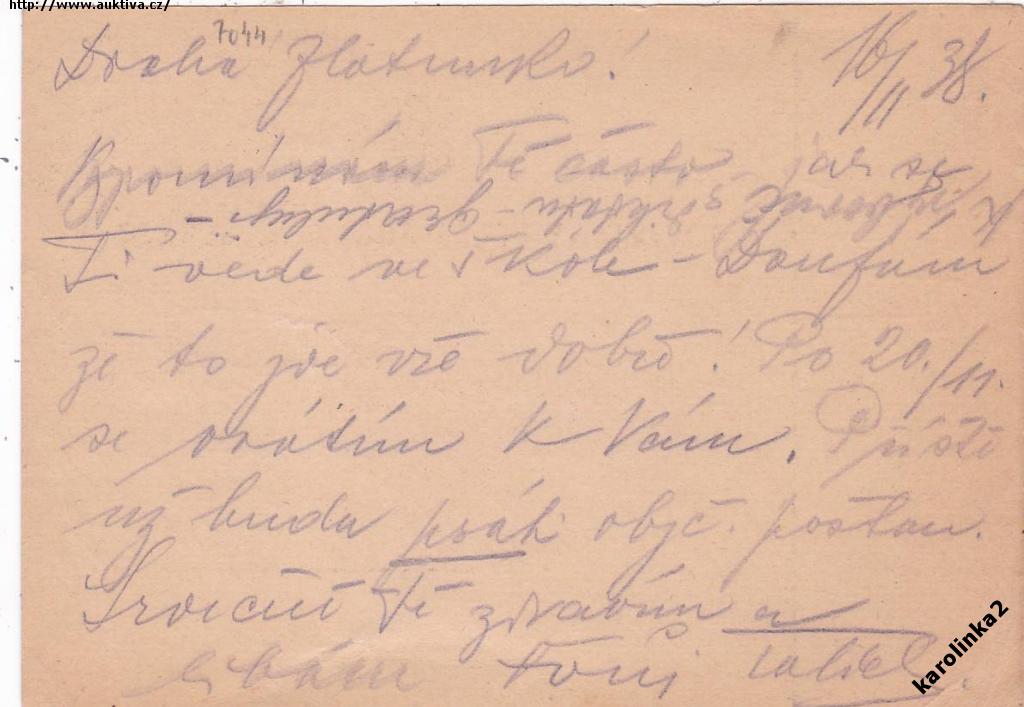 http://www.auktiva.cz/
7044
Drahá Zlatunko!
16/11 38.
Vzpomínám Tě často - jak se
Ti vede ve škole - Doufám
že to jde vše dobře! Po 20./11.
se vrátím k Vám. Příště
už budu psáti obyč. poštou.
Srdečně Tě zdravím a
líbám Tvůj
karolinka2